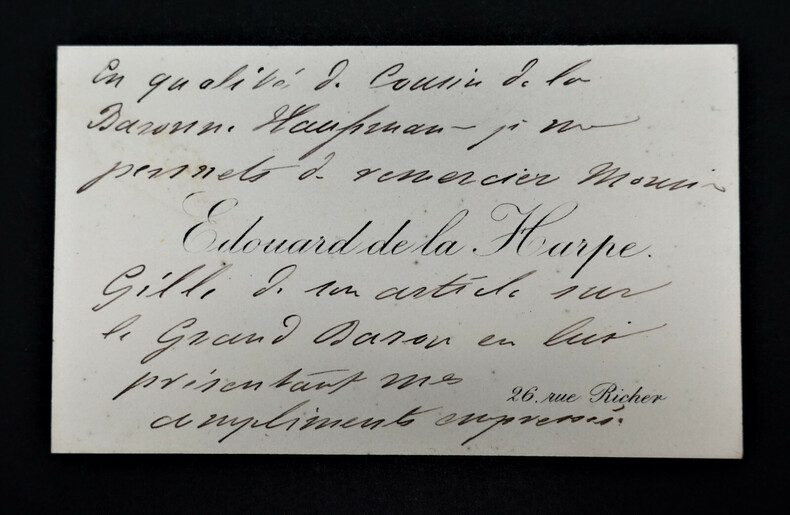 En qualité de Cousin de la
Baronne Haussmann je me
permets de remercier Monsieur
Edouard de la Harpe.
Gille de son article sur
le Grand Baron en lui
présentant mes
26. rue Richer
compliments empressés.